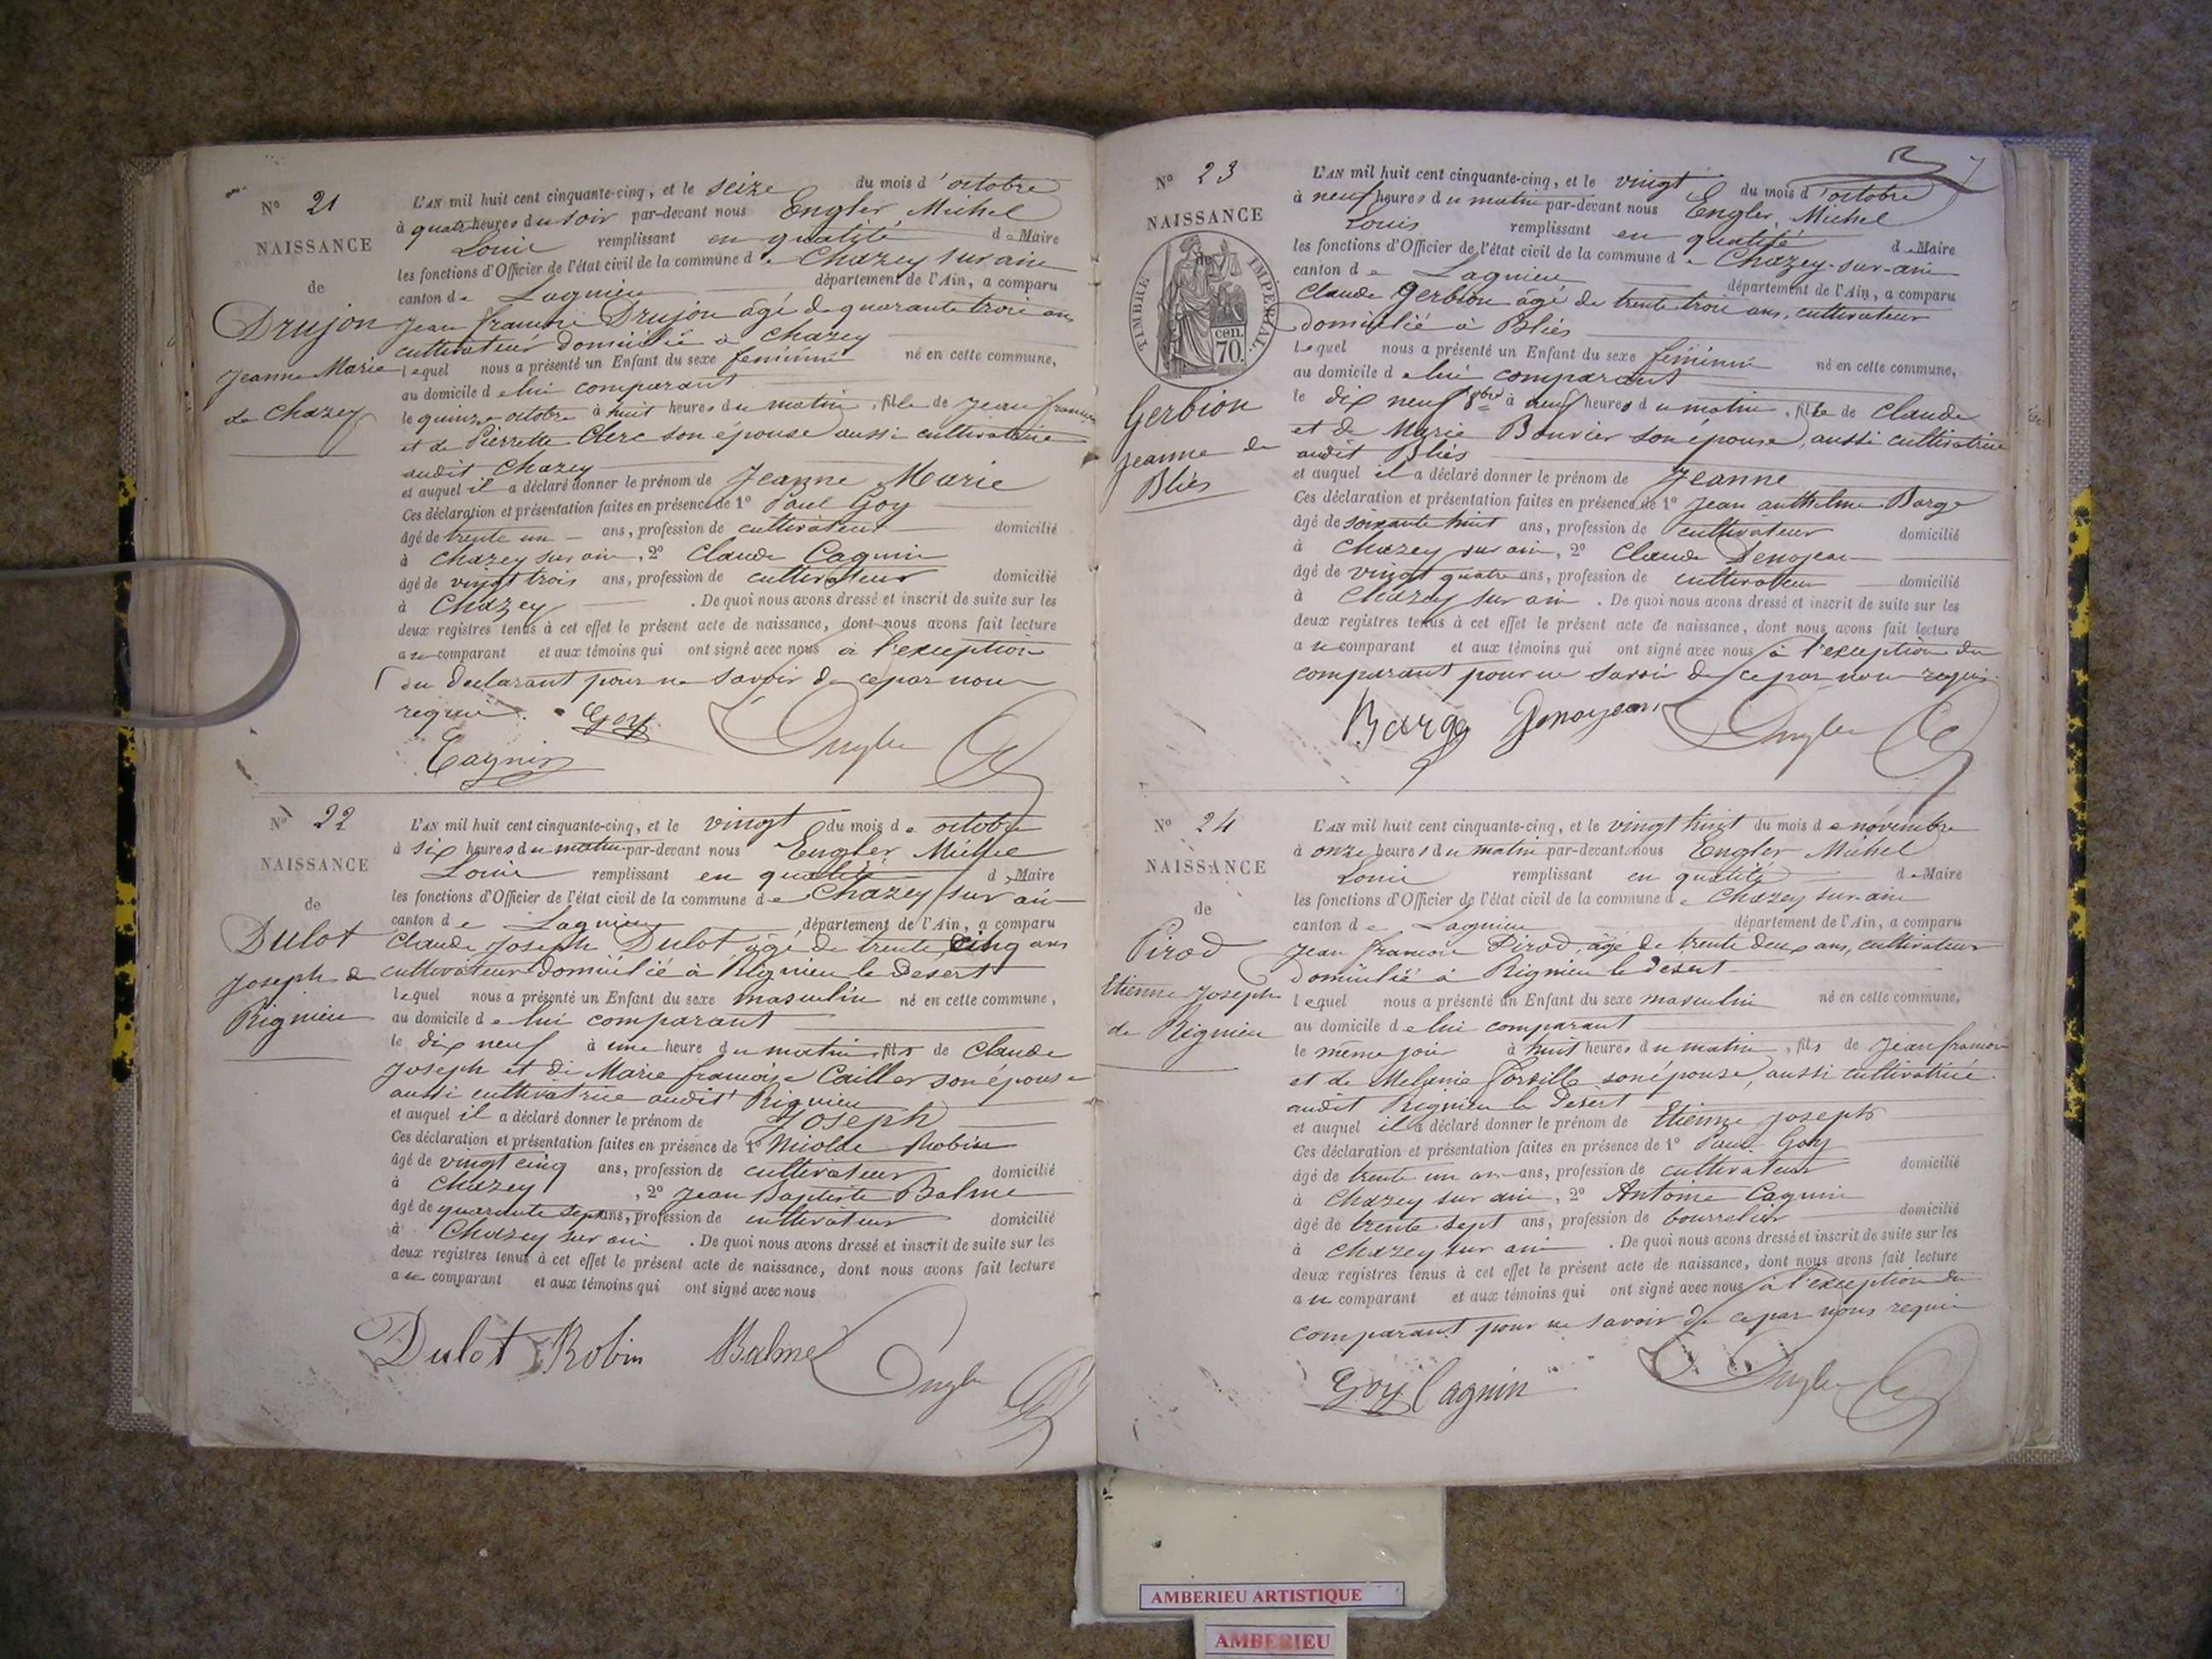 No 21
NAISSANCE
de
Drujon
Jeanne Marie
de Chazey
L'AN mil huit cent cinquante-cinq, et le seize du mois d'octobre
à quatre heures du soir par-devant nous Engler Michel
Louis remplissant en qualité de Maire
les fonctions d'Officier de l'état civil de la commune de Chazey sur ain
canton de Lagnieu département de l'Ain, a comparu
Jean françois Drujon âgé de quarante trois ans
cultivateur domicilié à Chazey
lequel nous a présenté un Enfant du sexe féminin né en cette commune,
au domicile de lui comparant
le quinze octobre à huit heures du matin, fille de Jean françois
et de Pierrette Clerc son épouse aussi cultivatrice
audit Chazey
et auquel il a déclaré donner le prénom de Jeanne Marie
Ces déclaration et présentation faites en présence de 1º Paul Goy
âgé de trente un ans, profession de cultivateur domicilié
à Chazey sur ain, 2º Claude Cagnin
âgé de vingt trois ans, profession de cultivateur domicilié
à Chazey. De quoi nous avons dressé et inscrit de suite sur les
deux registres tenus à cet effet le présent acte de naissance, dont nous avons fait lecture
au comparant et aux témoins qui ont signé avec nous à l'exception
du déclarant pour ne savoir de ce par nous
requis. Goy Engler
Cagnin
No 22
NAISSANCE
de
Dulot
Joseph de
Rignieu
L'AN mil huit cent cinquante-cinq, et le vingt du mois de octobre
à six heures du matin par-devant nous Engler Michel
Louis remplissant en qualité de Maire
les fonctions d'Officier de l'état civil de la commune de Chazey sur ain
canton de Lagnieu département de l'Ain, a comparu
Claude Joseph Dulot âgé de trente cinq ans
cultivateur domicilié à Rignieu le Desert
lequel nous a présenté un Enfant du sexe masculin né en cette commune,
au domicile de lui comparant
le dix neuf à une heure du matin, fils de Claude
Joseph et de Marie françoise Cailler son épouse
aussi cultivatrice audit Rignieu
et auquel il a déclaré donner le prénom de Joseph
Ces déclaration et présentation faites en présence de 1º Nicolas Robin
âgé de vingt cinq ans, profession de cultivateur domicilié
à Chazey, 2º Jean Baptiste Balme
âgé de quarante sept ans, profession de cultivateur domicilié
à Chazey sur ain. De quoi nous avons dressé et inscrit de suite sur les
deux registres tenus à cet effet le présent acte de naissance, dont nous avons fait lecture
au comparant et aux témoins qui ont signé avec nous
Dulot Robin Balme Engler
No 23
NAISSANCE
de
TIMBRE IMPÉRIAL
70 cen.
Gerbion
Jeanne de
Bliés
L'AN mil huit cent cinquante-cinq, et le vingt du mois d'octobre
à neuf heures du matin par-devant nous Engler Michel
Louis remplissant en qualité de Maire
les fonctions d'Officier de l'état civil de la commune de Chazey-sur-ain
canton de Lagnieu département de l'Ain, a comparu
Claude Gerbion âgé de trente trois ans, cultivateur
domicilié à Bliés
Lequel nous a présenté un Enfant du sexe féminin né en cette commune,
au domicile de lui comparant
le dix neuf 8bre à neuf heures du matin, fille de Claude
et de Marie Bouvier son épouse, aussi cultivatrice
audit Bliés
et auquel il a déclaré donner le prénom de Jeanne
Ces déclaration et présentation faites en présence de 1º Jean anthelme Barge
âgé de soixante huit ans, profession de cultivateur domicilié
à Chazey sur ain, 2º Claude Denojean
âgé de vingt quatre ans, profession de cultivateur domicilié
à Chazey sur ain. De quoi nous avons dressé et inscrit de suite sur les
deux registres tenus à cet effet le présent acte de naissance, dont nous avons fait lecture
au comparant et aux témoins qui ont signé avec nous à l'exception du
comparant pour ne savoir de ce par nous requis.
Barge Denojean Engler
No 24
NAISSANCE
de
Pirod
Etienne Joseph
de Rignieu
L'AN mil huit cent cinquante-cinq, et le vingt huit du mois de novembre
à onze heures du matin par-devant nous Engler Michel
Louis remplissant en qualité de Maire
les fonctions d'Officier de l'état civil de la commune de Chazey sur ain
canton de Lagnieu département de l'Ain, a comparu
Jean françois Pirod, âgé de trente deux ans, cultivateur
domicilié à Rignieu le désert
lequel nous a présenté un Enfant du sexe masculin né en cette commune,
au domicile de lui comparant
le même jour à huit heures du matin, fils de Jean françois
et de Melanie son épouse, aussi cultivatrice
audit Rignieu le Desert
et auquel il a déclaré donner le prénom de Etienne Joseph
Ces déclaration et présentation faites en présence de 1º Paul Goy
âgé de trente un an ans, profession de cultivateur domicilié
à Chazey sur ain, 2º Antoine Cagnin
âgé de trente sept ans, profession de bourrelier domicilié
à Chazey sur ain. De quoi nous avons dressé et inscrit de suite sur les
deux registres tenus à cet effet le présent acte de naissance, dont nous avons fait lecture
au comparant et aux témoins qui ont signé avec nous à l'exception du
comparant pour ne savoir de ce par nous requis
Goy Cagnin Engler
AMBERIEU ARTISTIQUE
AMBERIEU